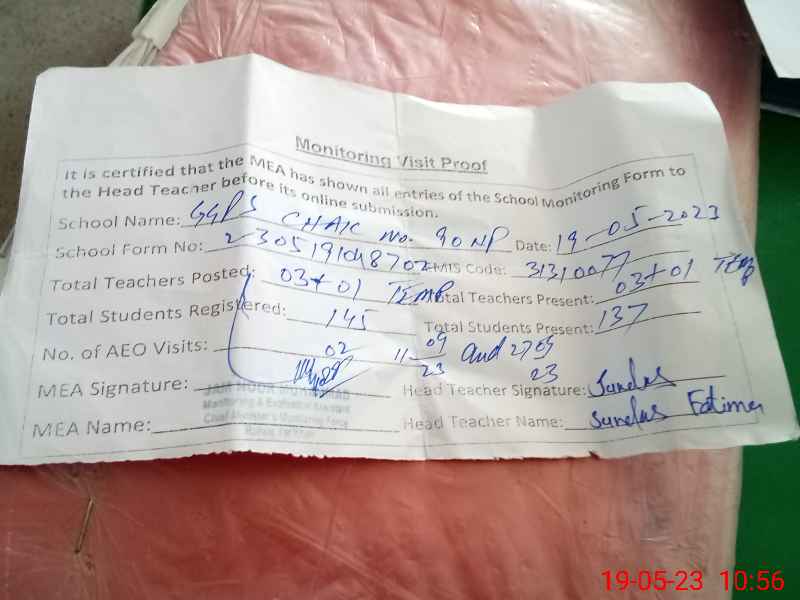 Monitoring Visit Proof
It is certified that the MEA has shown all entries of the School Monitoring Form to
the Head Teacher before its online submission.
School Name: GGPS CHAK No. 90 NP Date: 19-05-2023
School Form No: 2-305191048702 EMIS Code: 31310077
Total Teachers Posted: 03+01 TEMP Total Teachers Present: 03+01 TEMP
Total Students Registered: 145 Total Students Present: 137
No. of AEO Visits: 02 11 and 27
23 23
MEA Signature: Head Teacher Signature: Sundas
Monitoring & Evaluation Assistant
Chief Minister's Monitoring Force
MEA Name: Head Teacher Name: Sundas Fatima
19-05-23 10:56